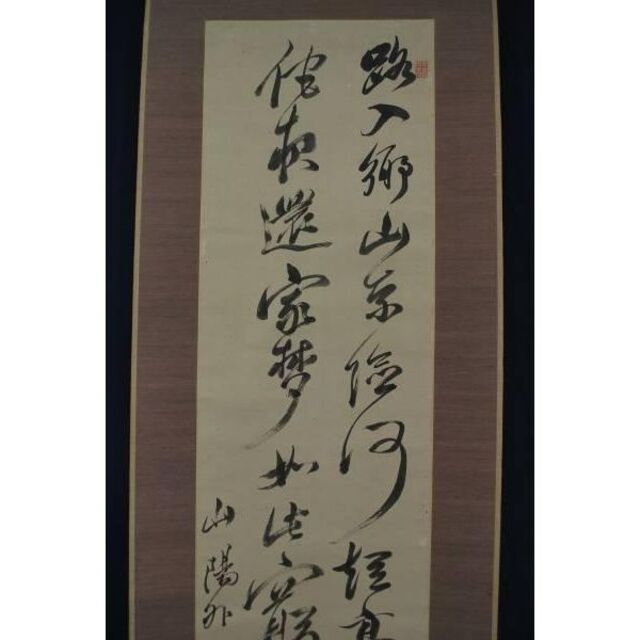 路入鄉山奈險何短
他夜還家夢如此
山陽外